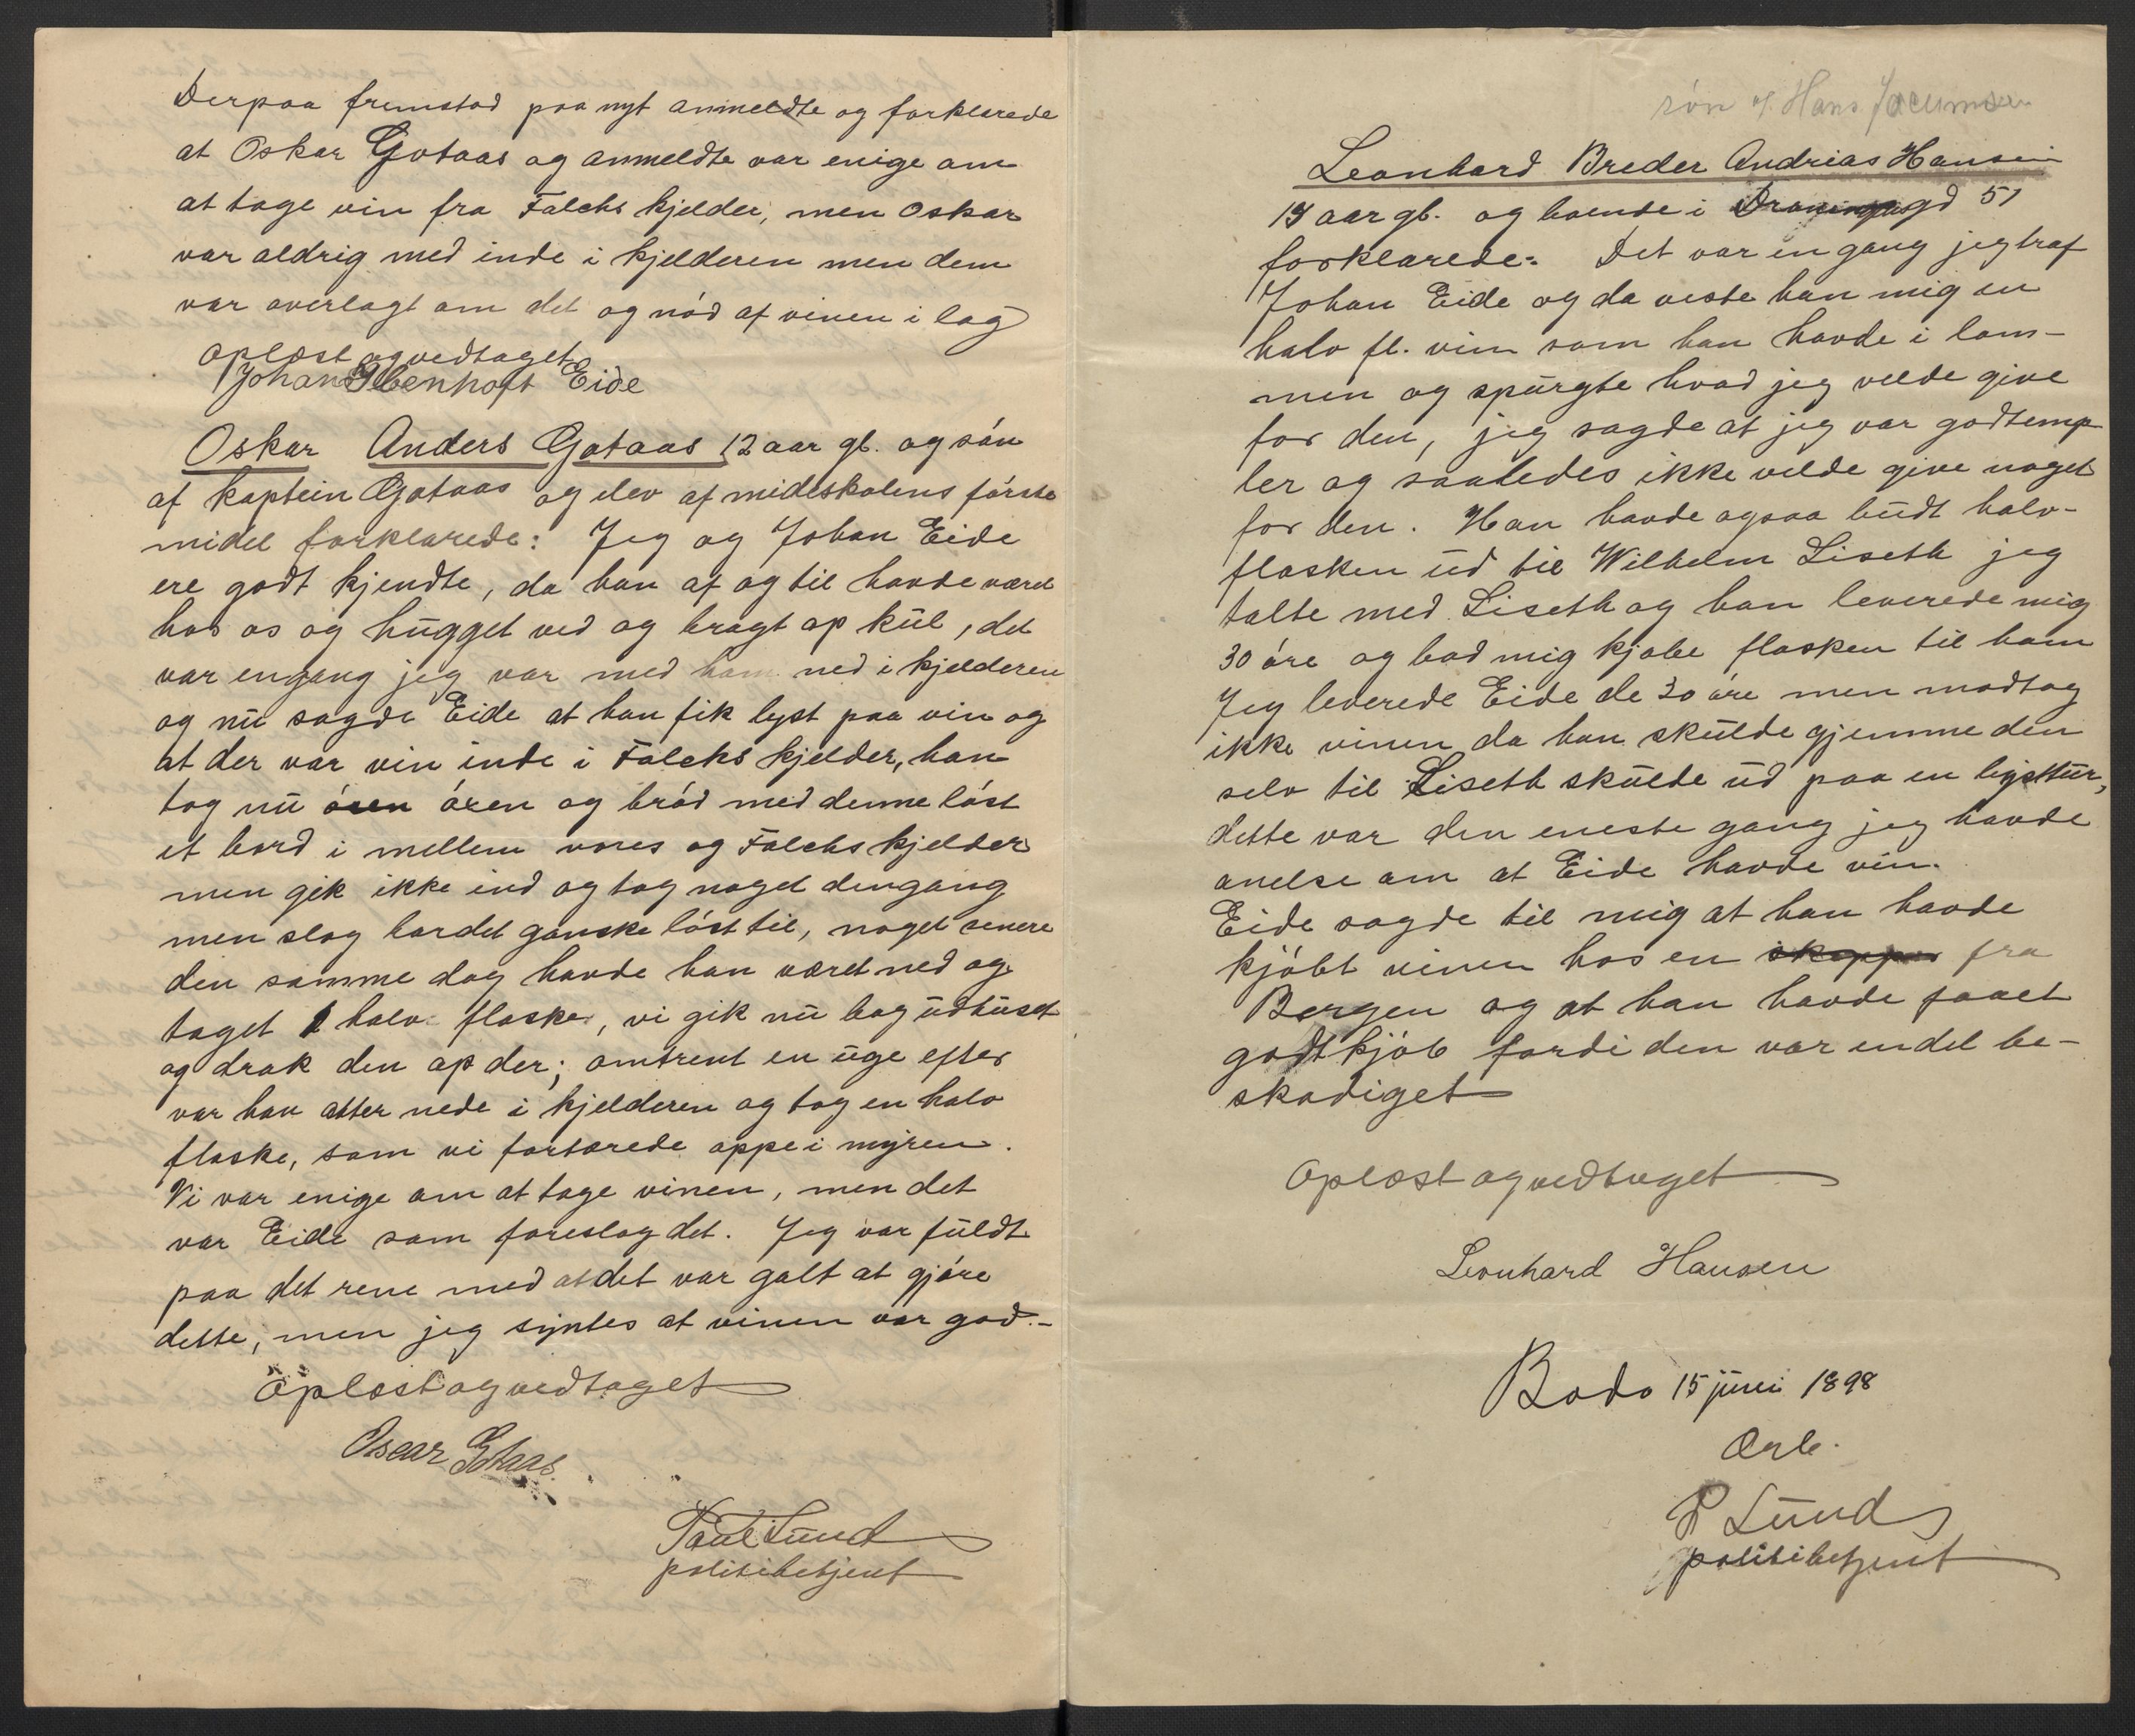 Derpaa fremstod paa nyt anmeldte og forklarede
at Oskar Gotaas og anmeldte var enige om
at tage vin fra Falchs kjelder, men Oskar
var aldrig med inde i kjelderen men dem
var overlagt om det og nód af vinen i lag
Oplæst og vedtaget
Johan Ibenhoft Eide
Oskar Anders Gotaas 12 aar gl. og són
af kaptein Gotaas og elev af mideskolens fórste
midel forklarede: Jeg og Johan Eide
ere godt kjendte, da han af og til havde været
hos os og hugget ved og bragt op kul, det
var engang jeg var med ham ned i kjelderen
og nu sagde Eide at han fik lyst paa vin og
at der var vin inde i Falchs kjelder, han
tog nu óxen og bród med denne lóst
et bord i mellem vores og Falchs kjelder
men gik ikke ind og tog noget dengang
men slog bordet ganske lóst til, noget senere
den samme dag havde han været ned og
taget 1 halv flaske, vi gik nu bag udhuset
og drak den op der; omtrent en uge efter
var han atter nede i kjelderen og tog en halv
flaske, som vi fortærede oppe i myren.
Vi var enige om at tage vinen, men det
var Eide som foreslog det. Jeg var fuldt
paa det rene med at det var galt at gjóre
dette, men jeg syntes at vinen var god.-
Oplæst og vedtaget
Oscar Gotaas.
Paul Lund
politibetjent
són af Hans Jocumsen
Leonhard Breder Andrias Hansen
aar gl. og boende i Droningensgd 51
forklarede: Det var en gang jeg traf
Johan Eide og da viste han mig en
halv fl. vin som han havde i lom-
men og spurgte hvad jeg velde give
for den, jeg sagde at jeg var godtemp-
ler og saaledes ikke velde give noget
for den. Han havde ogsaa budt halv-
flasken ud til Wilhelm Liseth jeg
talte med Liseth og han leverede mig
30 óre og bad mig kjøbe flasken til ham
Jeg leverede Eide de 30 óre men modtog
ikke vinen da han skulde gjemme den
selv til Liseth skulde ud paa en lysttur,
dette var den eneste gang jeg havde
anelse om at Eide havde vin.
Eide sagde til mig at han havde
kjóbt vinen hos en skopper fra
Bergen og at han havde faaet
godt kjób fordi den var endel be-
skadiget
Oplæst og vedtaget
Leonhard Hansen
Bodo 15 juni 1898
Ærb.
P Lund
politibetjent